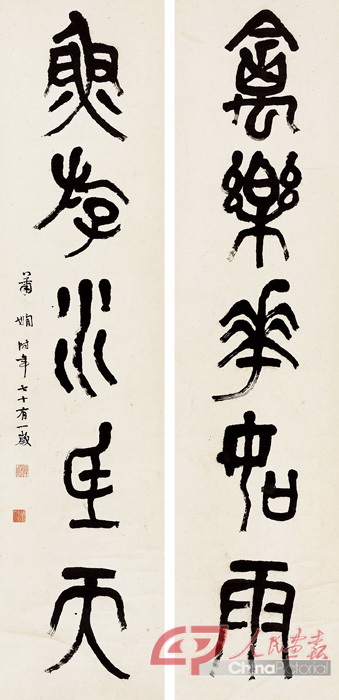 禽樂華如雨
魚斿水在天
蕭嫺時年七十有一歲
人民画报
ChinaPictorial